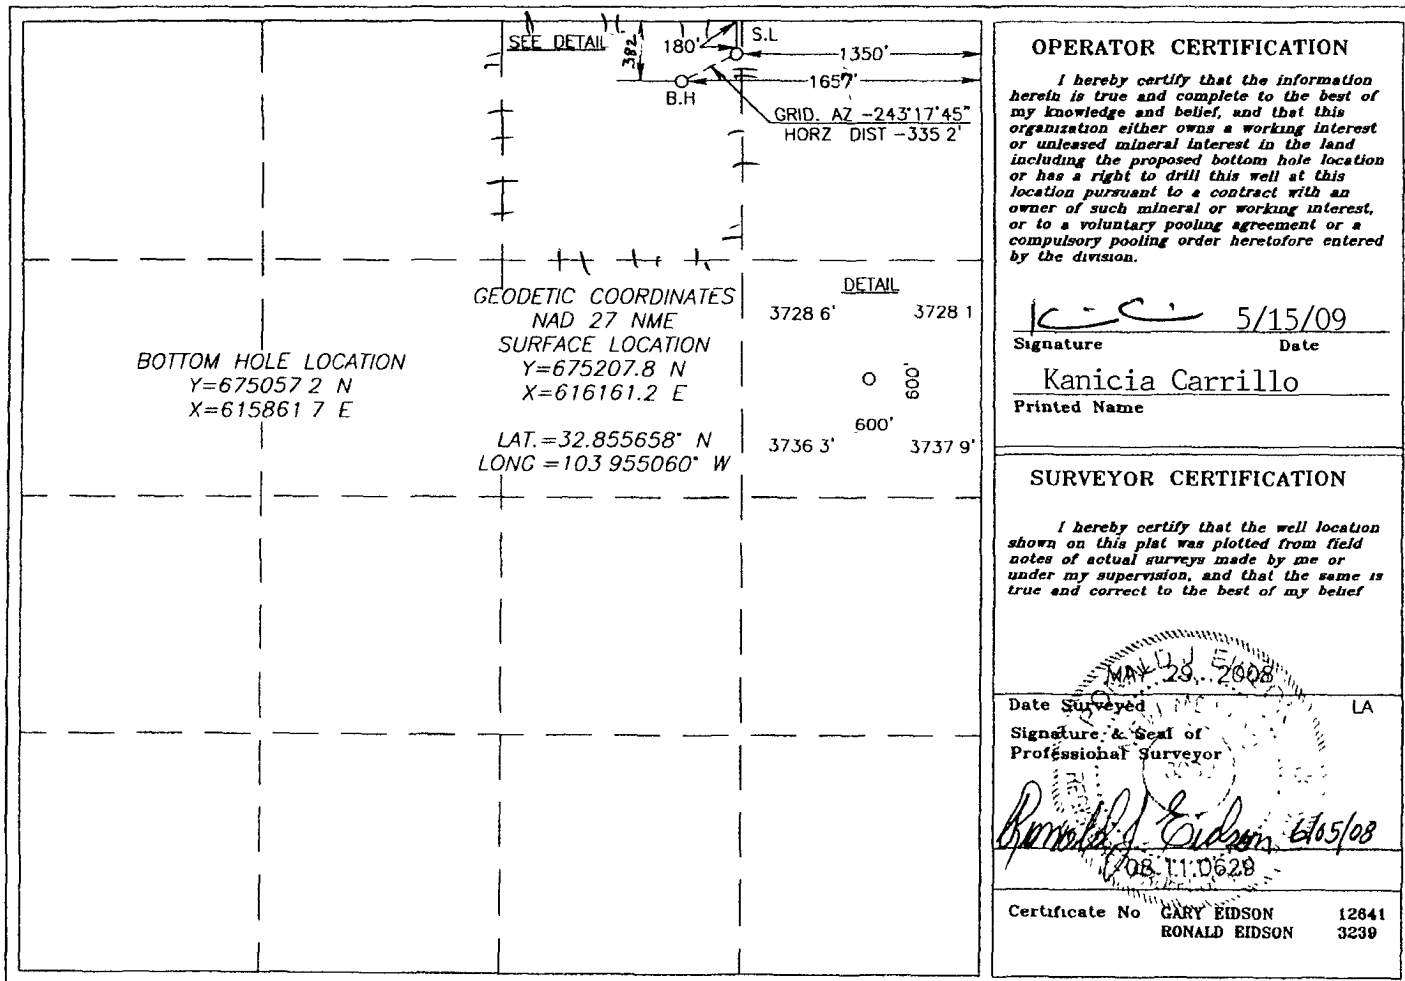 SEE DETAIL
382
180'
S.L
1350'
1657'
B.H
GRID. AZ -243°17'45"
HORZ DIST -335 2'
GEODETIC COORDINATES
NAD 27 NME
SURFACE LOCATION
Y=675207.8 N
X=616161.2 E
LAT.=32.855658° N
LONG =103 955060° W
BOTTOM HOLE LOCATION
Y=675057 2 N
X=615861 7 E
DETAIL
3728 6' 3728 1
600'
600'
3736 3' 3737 9'
OPERATOR CERTIFICATION
I hereby certify that the information
herein is true and complete to the best of
my knowledge and belief, and that this
organization either owns a working interest
or unleased mineral interest in the land
including the proposed bottom hole location
or has a right to drill this well at this
location pursuant to a contract with an
owner of such mineral or working interest,
or to a voluntary pooling agreement or a
compulsory pooling order heretofore entered
by the division.
5/15/09
Signature Date
Kanicia Carrillo
Printed Name
SURVEYOR CERTIFICATION
I hereby certify that the well location
shown on this plat was plotted from field
notes of actual surveys made by me or
under my supervision, and that the same is
true and correct to the best of my belief
MAY 29, 2008
Date Surveyed LA
Signature & Seal of
Professional Surveyor
Ronald J. Eidson 6/05/08
08.11.0629
Certificate No GARY EIDSON 12641
RONALD EIDSON 3239